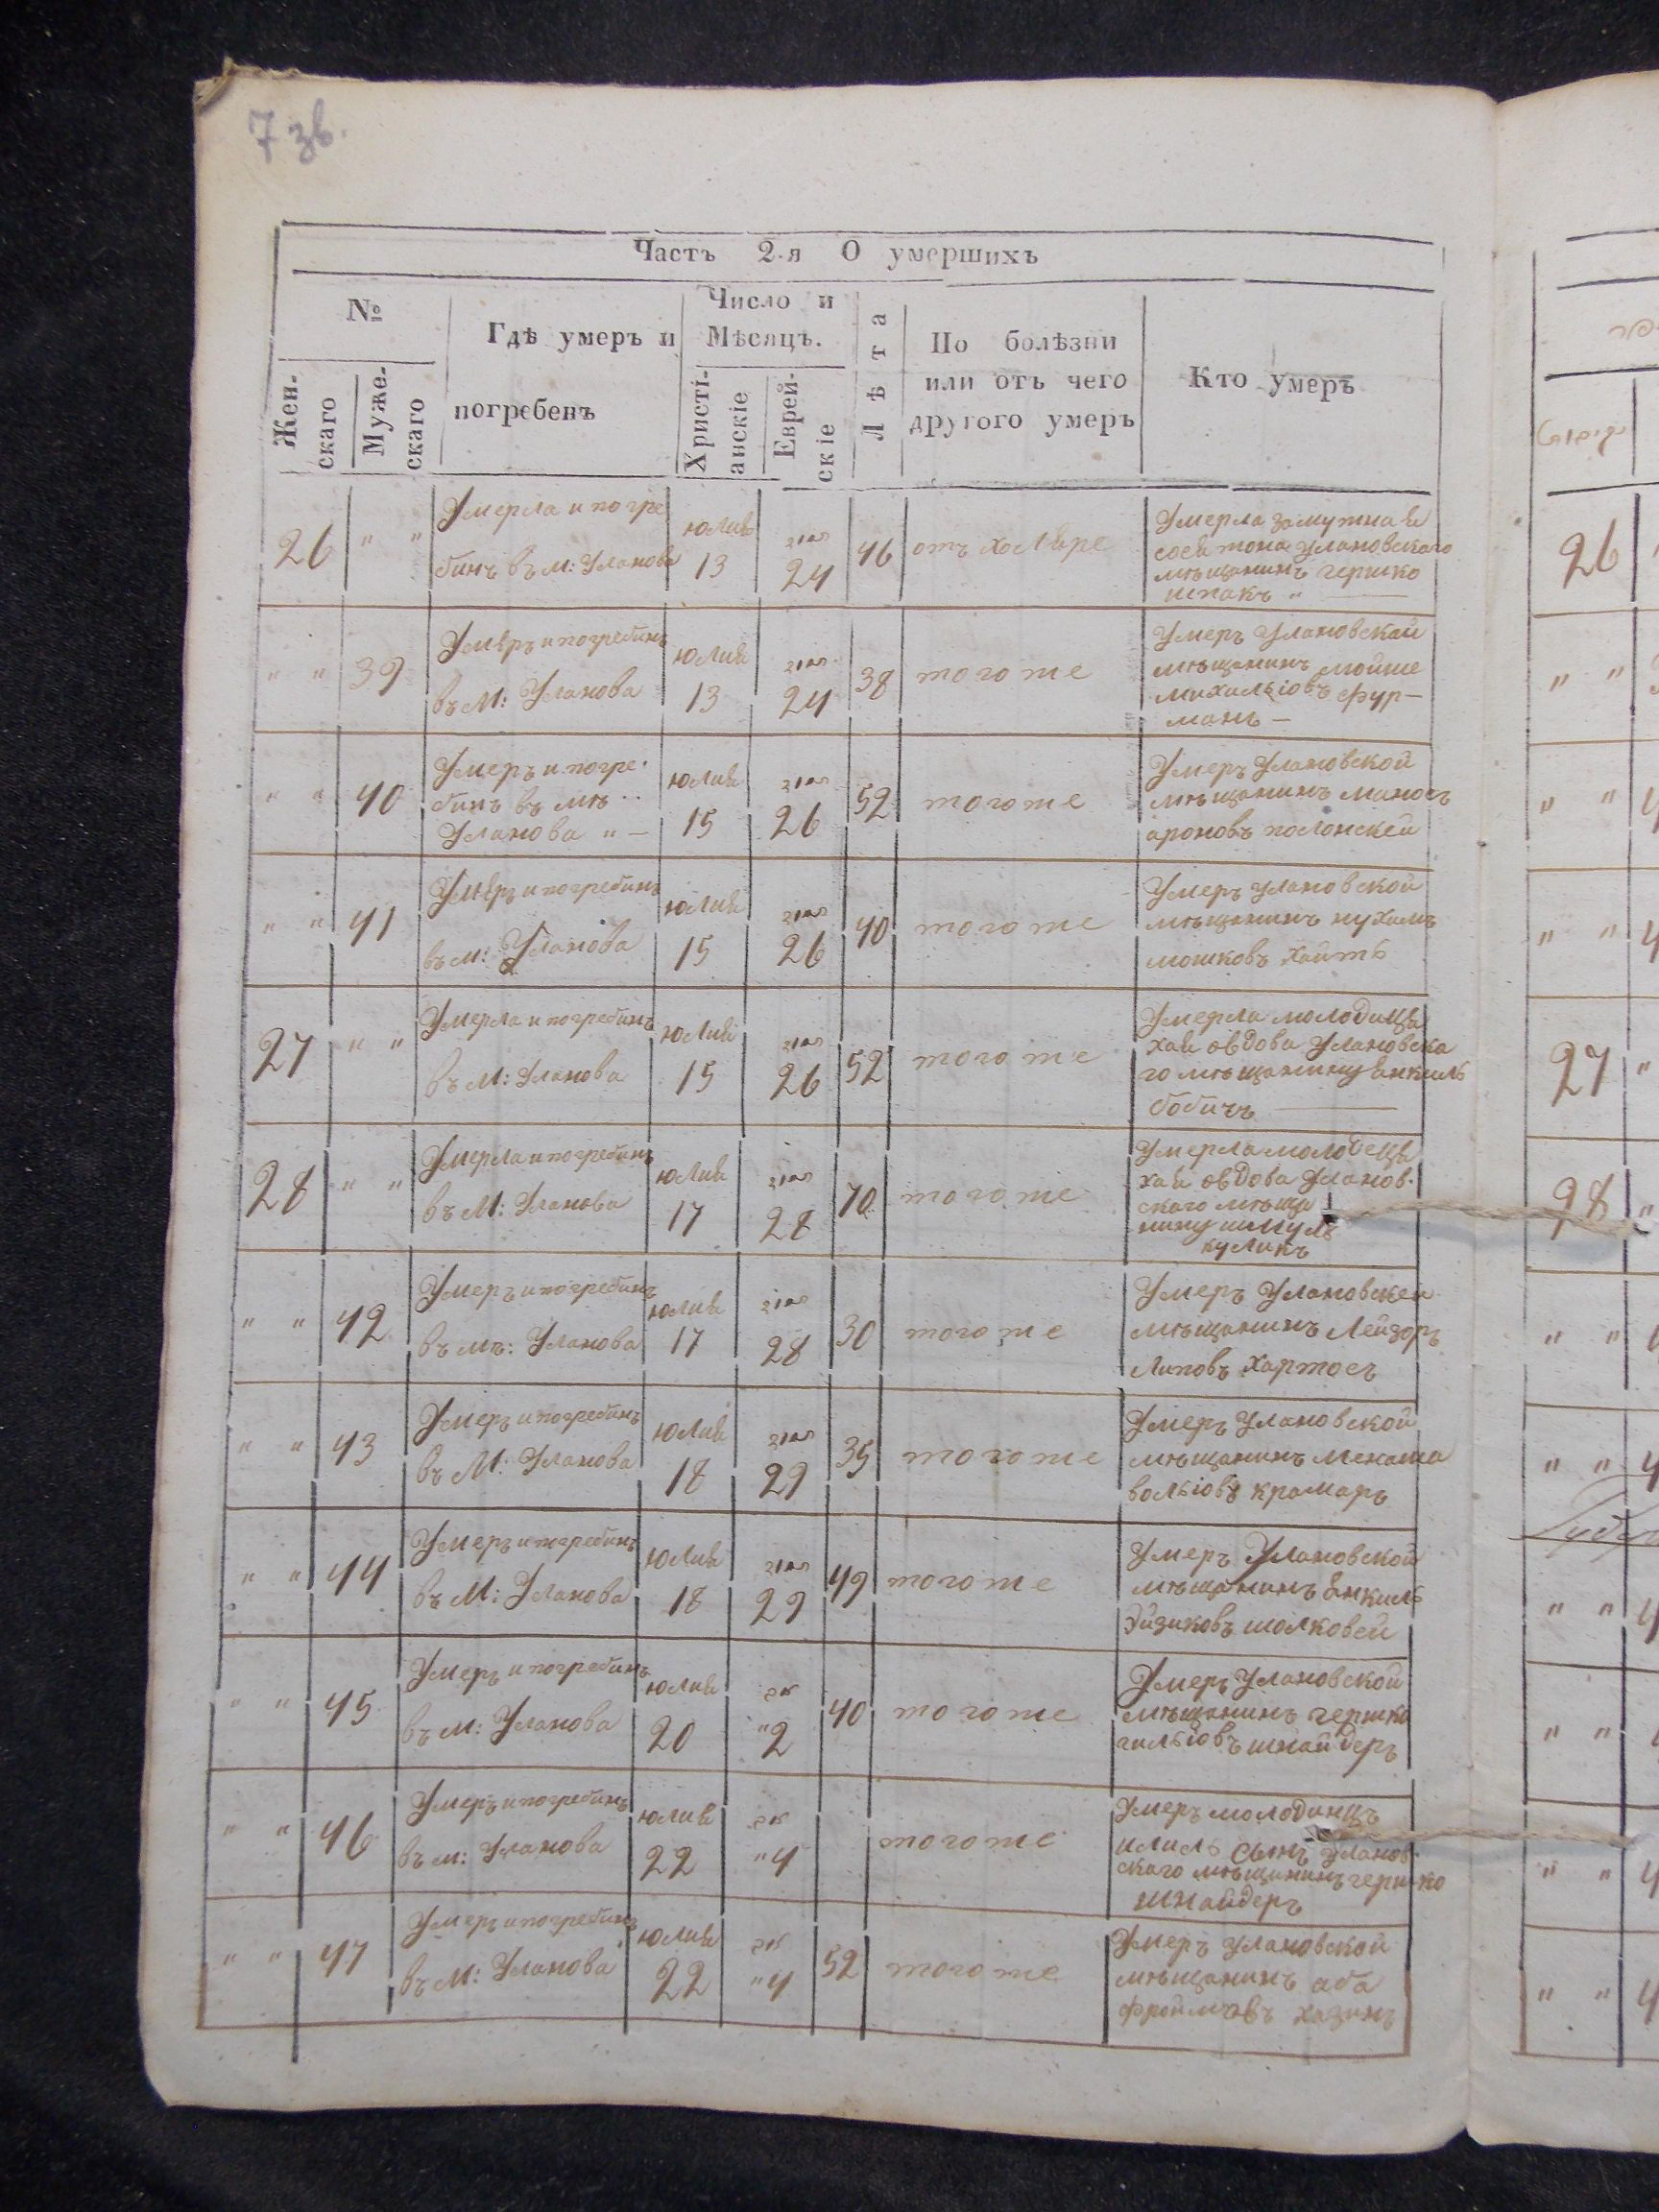 7 зв.
Часть 2-я О умершихъ
№
Жен-
скаго
Муже-
скаго
Гдѣ умеръ и
погребенъ
Число и
Мѣсяцъ.
Христі-
анскіе
Еврей-
скіе
Лѣта
По болѣзни
или отъ чего
другого умеръ
Кто умеръ
26 " "
Умерла и погре
бинъ въ м: Уланова
юлия
13
24
46
отъ
Умерла замужная
Улановскаго
мѣщанинъ гершко
шпакъ "
" " 39
Умеръ и погребинъ
въ М: Уланова
юлия
13
24
38
тогоже
Умеръ Улановской
мѣщанинъ мойше
михильіовъ фур-
манъ
" " 40
Умеръ и погре.
бинъ въ мѣ..
Уланова " —
юлия
15
26
52
тогоже
Умеръ Улановской
мѣщанинъ маносъ
ароновъ полонскей
" " 41
Умеръ и погребинъ
въ м: Уланова
юлия
15
26
40
тогоже
Умеръ улановской
мѣщанинъ нухимъ
мошковъ хаитъ
27 " "
Умерла и погребинъ
въ М: Уланова
юлия
15
26
52
тогоже
Умерла молодица
хая овдова Улановска
го мѣщанину янкиль
бобичъ
28 " "
Умерла и погребинъ
въ М: Уланова
юлия
17
28
70
тогоже
Умерла молодеца
хая овдова Уланов.
скаго мѣща
нину шмуль
куликъ
" " 42
Умеръ и погребинъ
въ мѣ: Уланова
юлия
17
28
30
тогоже
Умеръ Улановскей
мѣщанинъ Лейзоръ
Липовъ Хартосъ
" " 43
Умеръ и погребинъ
въ М: Уланова
юлия
18
29
35
тогоже
Умеръ Улановской
мѣщанинъ менаша
вольіовъ крамаръ
" " 44
Умеръ и погребинъ
въ М: Уланова
юлия
18
29
49
тогоже
Умеръ Улановской
мѣщанинъ янкиль
Эйзиковъ шолковей
" " 45
Умеръ и погребинъ
въ м: Уланова
юлия
20
"2
40
тогоже
Умеръ Улановской
мѣщанинъ гершко
шнайдеръ
" " 46
Умеръ и погребинъ
въ м: Уланова
юлия
22
"4
тогоже
Умеръ молодинцъ
сынъ Уланов.
скаго мѣщанинъ гершко
шнайдеръ
" " 47
Умеръ и погребинъ
въ М: Уланова
юлия
22
"4
52
тогоже
Умеръ улановской
мѣщанинъ аба
хазинъ
26
" "
" "
" "
27 "
28 "
" "
" "
" "
" "
" "
" "